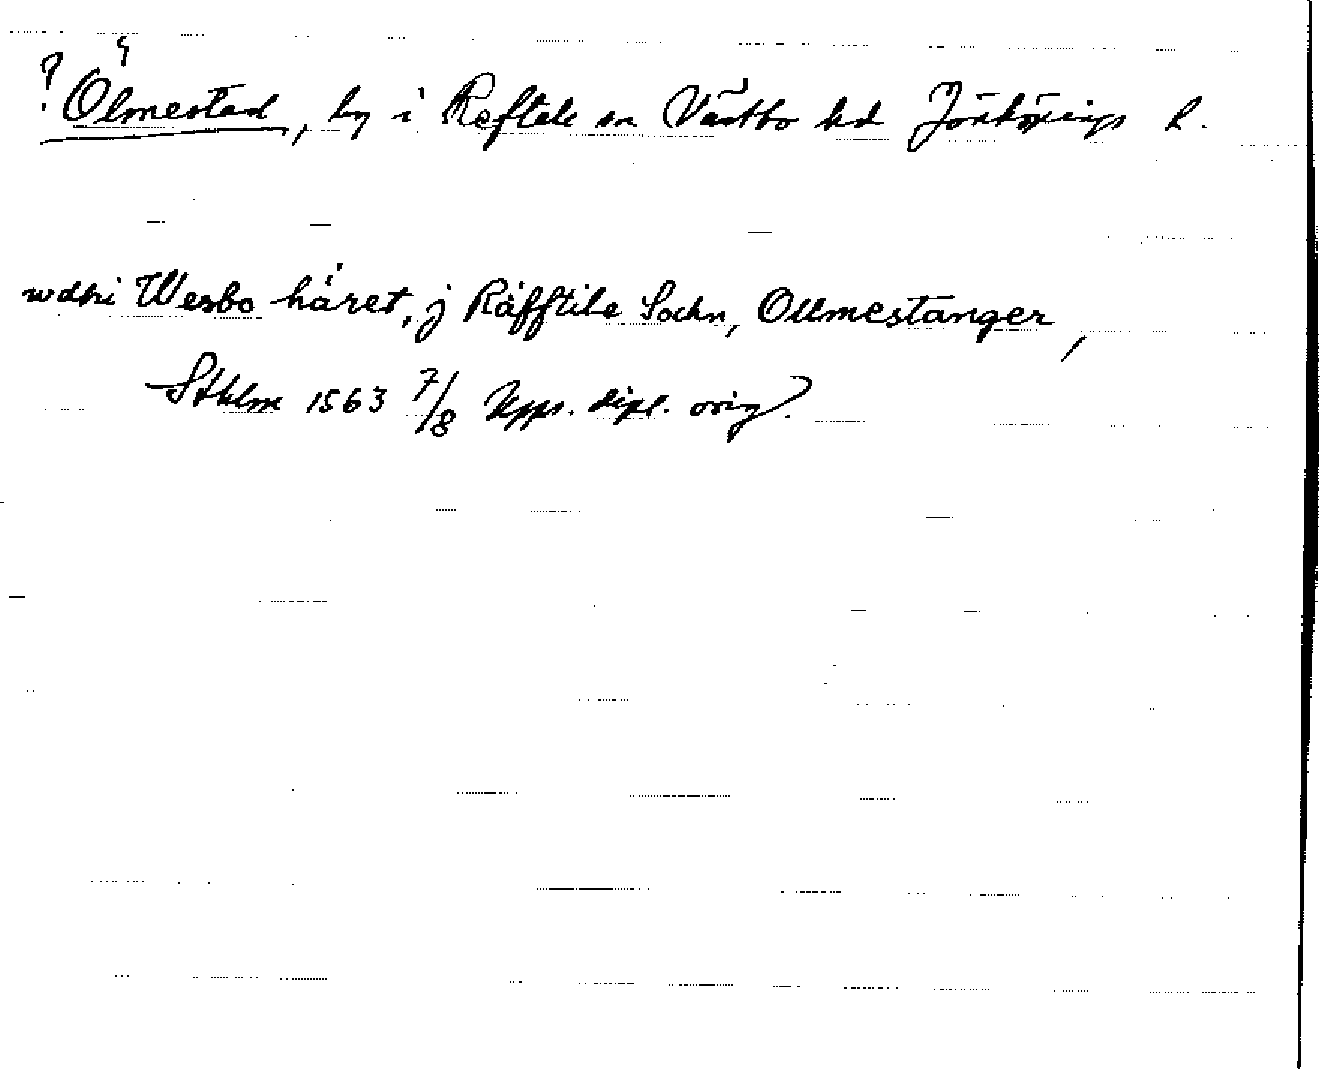 ? Ölmestad, by i Reftele sn Västbo hd Jönköpings l.
wdhi Wesbo häret, j Räfftile Sochn, Ollmestanger,
Sthlm 1563 7/8 Upps. dipl. orig.